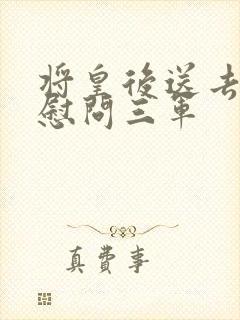 将皇後送去
慰問三軍
真費事